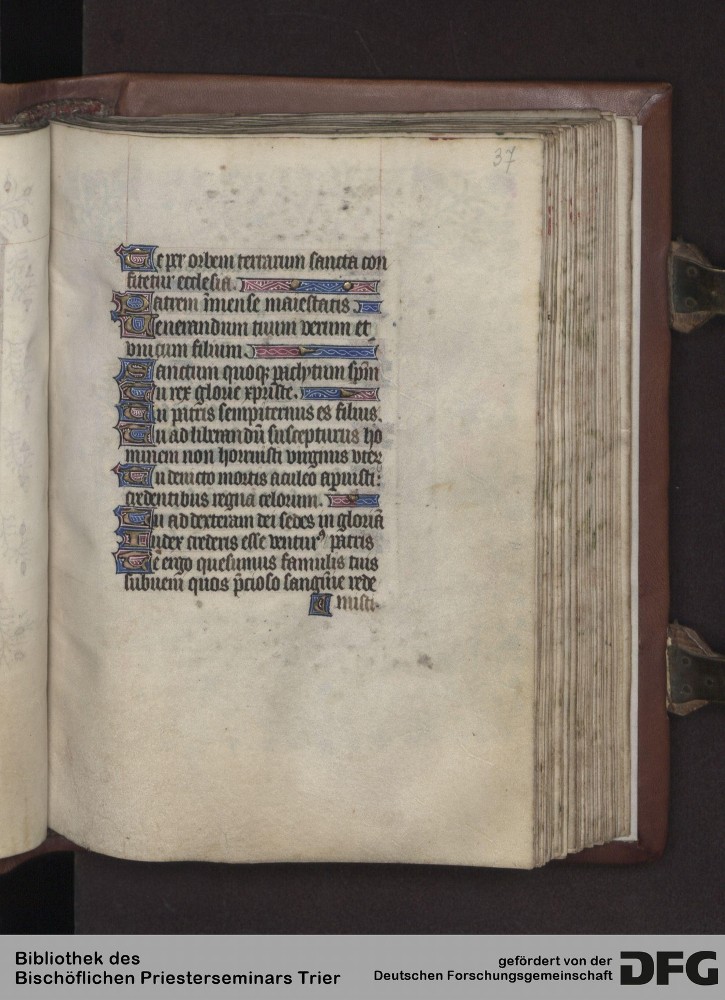 37
Te per orbem terrarum sancta con
fitetur ecclesia.
Patrem īmense maiestatis
Venerandum tuum verum et
vnicum filium.
Sanctum quoqꝫ paclytum spm̄
Tu rex glorie xpriste.
Tu patris sempiternus es filius.
Tu ad liberandū suscepturus ho
minem non horruisti virginis vter
Tu deuicto mortis aculeo apuisti:
credentibus regna celorum.
Tu ad dexteram dei sedes in gloriā
Iudex crederis esse venturꝰ patris
Te ergo quesumus famulis tuis
subueni quos p̄cioso sanguīe rede
misti.
Bibliothek des
Bischöflichen Priesterseminars Trier
gefördert von der
Deutschen Forschungsgemeinschaft
DFG